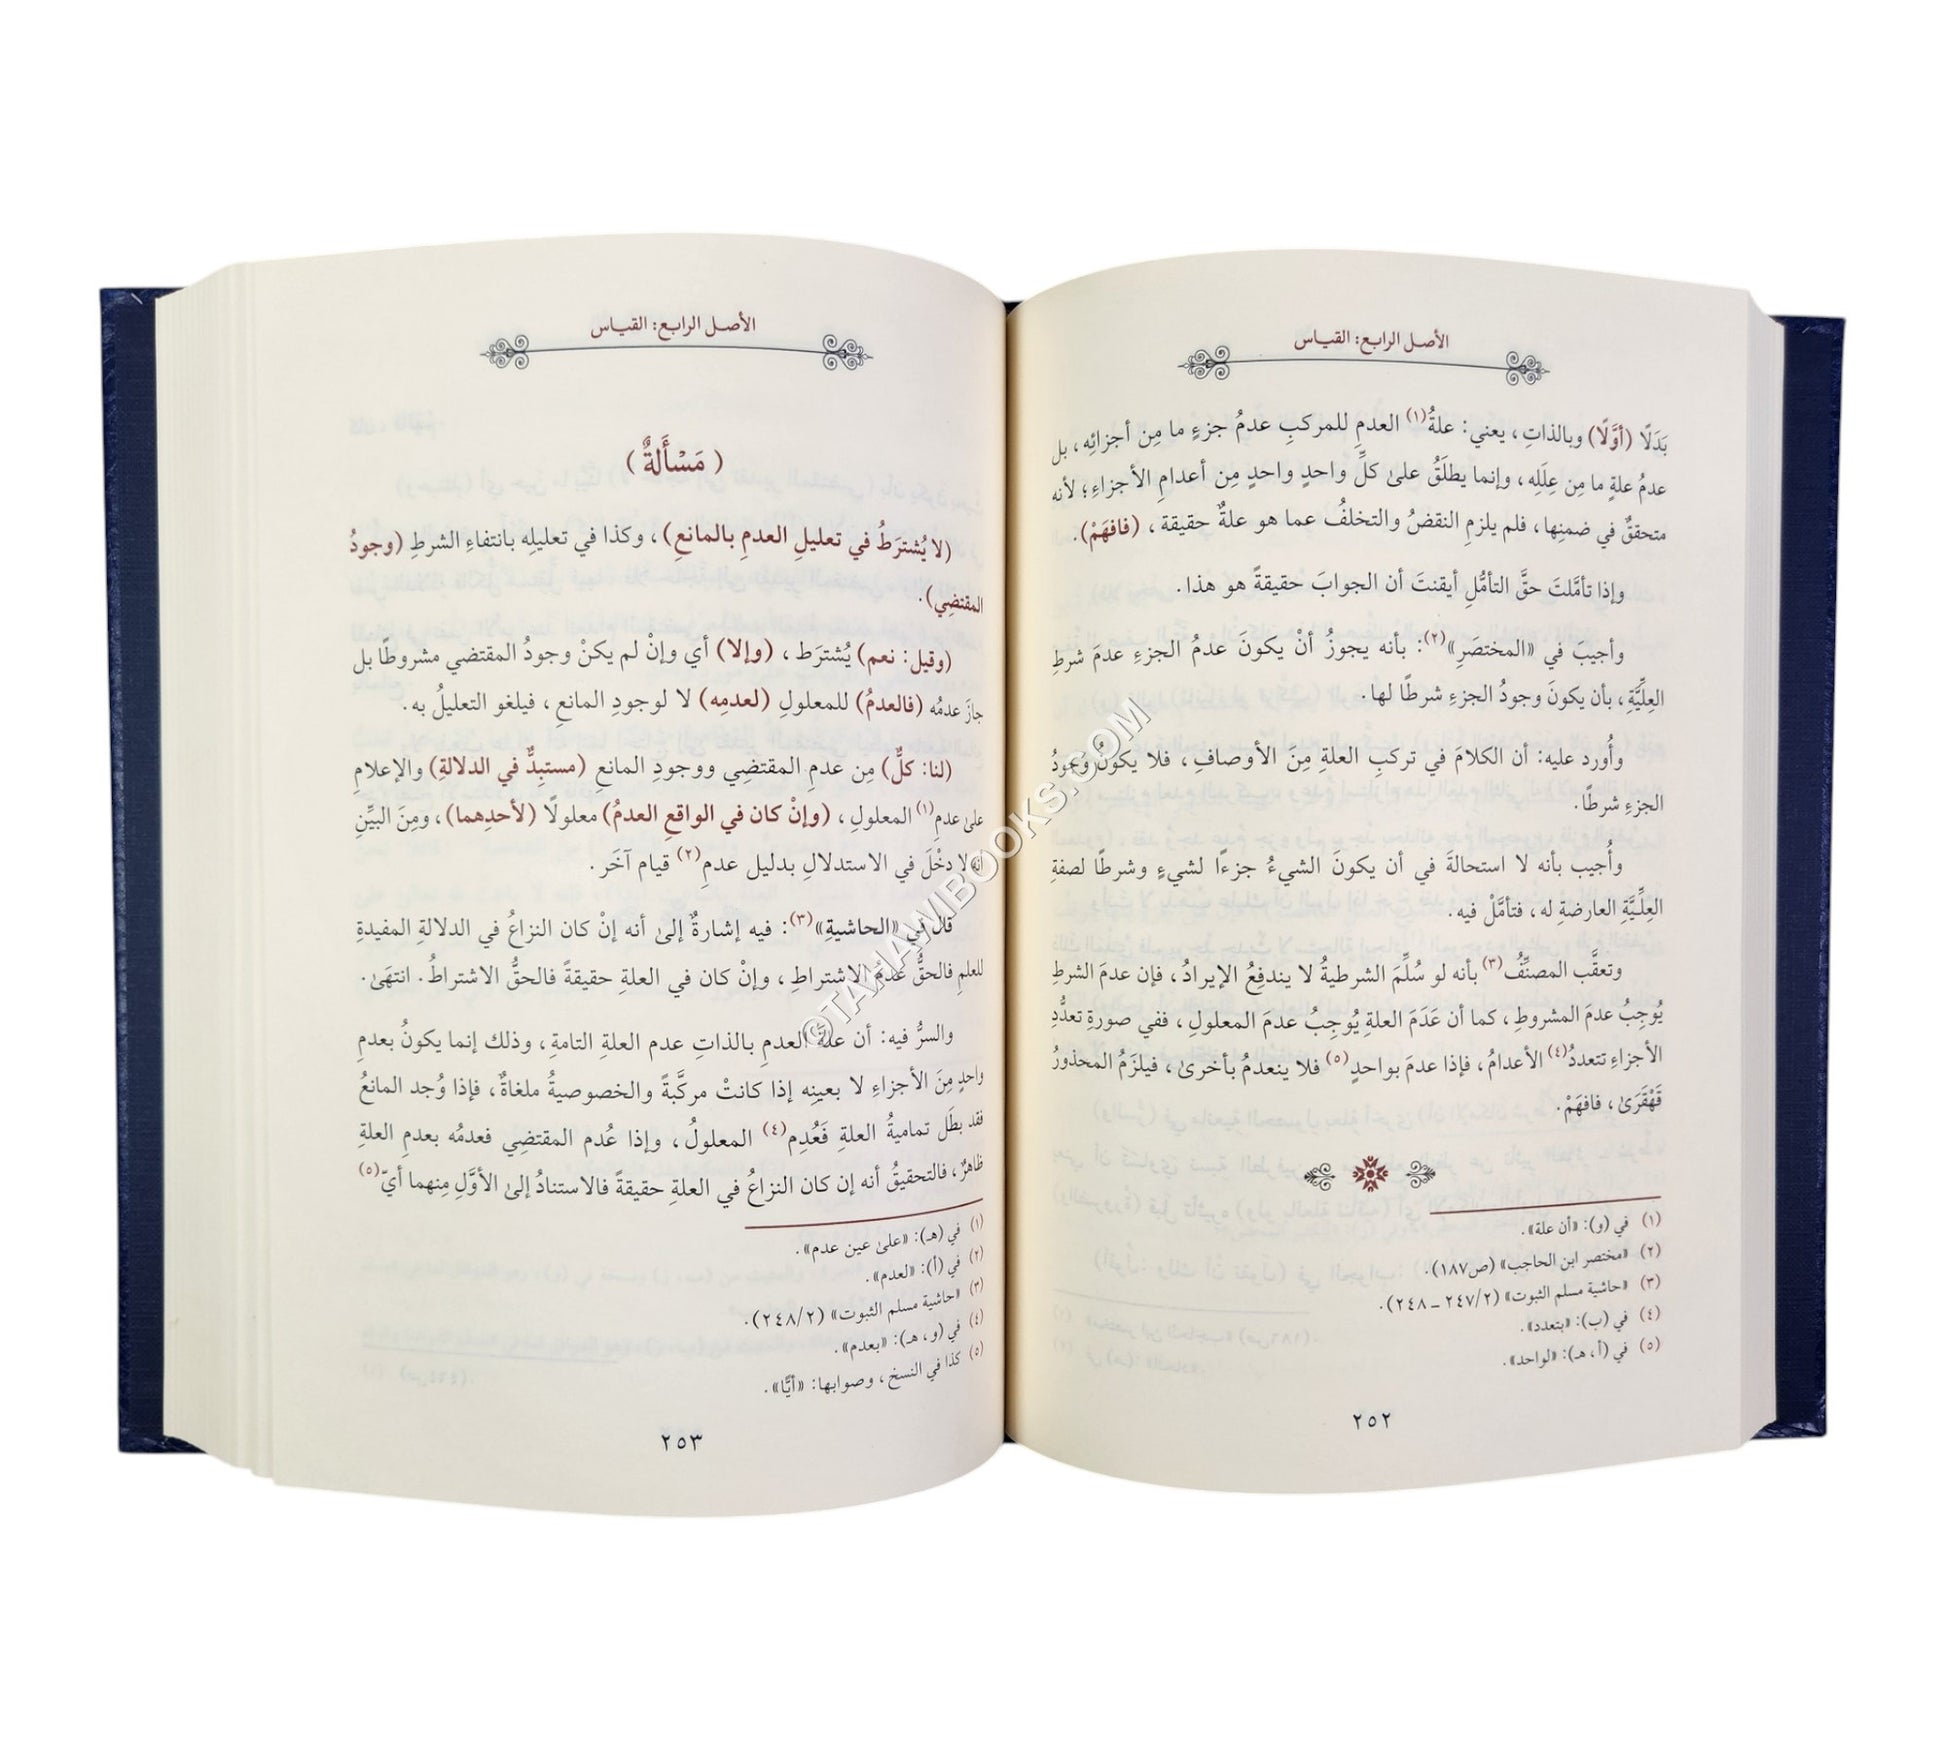 الأصل الرابع: القياس
بَدَلًا (أوَّلًا) وبالذاتِ، يعني: علةُ(١) العدمِ للمركبِ عدمُ جزءٍ ما مِن أجزائِه، بل
عدمُ علةٍ ما مِن عِلَلِه، وإنما يطلَقُ علىٰ كلِّ واحدٍ واحدٍ مِن أعدامِ الأجزاءِ؛ لأنه
متحققٌ في ضمنِها، فلم يلزمِ النقضُ والتخلفُ عما هو علةٌ حقيقة، (فافهَمْ).
وإذا تأمَّلتَ حقَّ التأمُّلِ أيقنتَ أن الجوابَ حقيقةً هو هذا.
وأجيبَ في «المختصَرِ»(٢): بأنه يجوزُ أنْ يكونَ عدمُ الجزءِ عدمَ شرطِ
العِلِّيَّةِ، بأن يكونَ وجودُ الجزءِ شرطًا لها.
وأُورد عليه: أن الكلامَ في تركبِ العلةِ مِنَ الأوصافِ، فلا يكونُ وجودُ
الجزءِ شرطًا.
وأُجيب بأنه لا استحالةَ في أن يكونَ الشيءُ جزءًا لشيءٍ وشرطًا لصفةِ
العِلِّيَّةِ العارضةِ له، فتأمَّلْ فيه.
وتعقَّب المصنِّفُ(٣) بأنه لو سُلِّمَ الشرطيةُ لا يندفِعُ الإيرادُ، فإن عدمَ الشرطِ
يُوجِبُ عدمَ المشروطِ، كما أن عَدَمَ العلةِ يُوجِبُ عدمَ المعلولِ، ففي صورةِ تعدُّدِ
الأجزاءِ تتعددُ(٤) الأعدامُ، فإذا عدمَ بواحدٍ(٥) فلا ينعدمُ بأخرىٰ، فيلزَمُ المحذورُ
قَهْقَرَىٰ، فافهَمْ.
(١) في (و): «أن علة».
(٢) «مختصر ابن الحاجب» (ص١٨٧).
(٣) «حاشية مسلم الثبوت» (٢/ ٢٤٧ ـ ٢٤٨).
(٤) في (ب): «بتعدد».
(٥) في (أ، هـ): «لواحد».
٢٥٢
الأصل الرابع: القياس
(مَسْأَلةٌ)
(لا يُشترَطُ في تعليلِ العدمِ بالمانعِ)، وكذا في تعليلِه بانتفاءِ الشرطِ (وجودُ
المقتضِي).
(وقيل: نعم) يُشترَط، (وإلا) أي وإنْ لم يكنْ وجودُ المقتضي مشروطًا بل
جازَ عدمُه (فالعدمُ) للمعلولِ (لعدمِه) لا لوجودِ المانعِ، فيلغو التعليلُ به.
(لنا: كلٌّ) مِن عدمِ المقتضِي ووجودِ المانعِ (مستبِدٌّ في الدلالةِ) والإعلامِ
علىٰ عدمِ(١) المعلولِ، (وإنْ كان في الواقعِ العدمُ) معلولًا (لأحدِهما)، ومِنَ البيِّنِ
أنه لا دخْلَ في الاستدلالِ بدليل عدمِ(٢) قيام آخَر.
قال في «الحاشيةِ»(٣): فيه إشارةٌ إلىٰ أنه إنْ كان النزاعُ في الدلالةِ المفيدةِ
للعلمِ فالحقُّ عدمُ الاشتراطِ، وإنْ كان في العلةِ حقيقةً فالحقُّ الاشتراطُ. انتهَىٰ.
والسرُّ فيه: أن علةَ العدمِ بالذاتِ عدم العلةِ التامةِ، وذلك إنما يكونُ بعدمِ
واحدٍ مِنَ الأجزاءِ لا بعينِه إذا كانتْ مركَّبةً والخصوصيةُ ملغاةٌ، فإذا وُجد المانعُ
فقد بطَل تماميةُ العلةِ فَعُدِم(٤) المعلولُ، وإذا عُدم المقتضِي فعدمُه بعدمِ العلةِ
ظاهرٌ، فالتحقيقُ أنه إن كان النزاعُ في العلةِ حقيقةً فالاستنادُ إلىٰ الأوَّلِ مِنهما أيّ(٥)
(١) في (هـ): «علىٰ عين عدم».
(٢) في (أ): «لعدم».
(٣) «حاشية مسلم الثبوت» (٢/ ٢٤٨).
(٤) في (و، هـ): «بعدم».
(٥) كذا في النسخ، وصوابها: «أيًّا».
٢٥٣
©TAHAWIBOOKS.COM